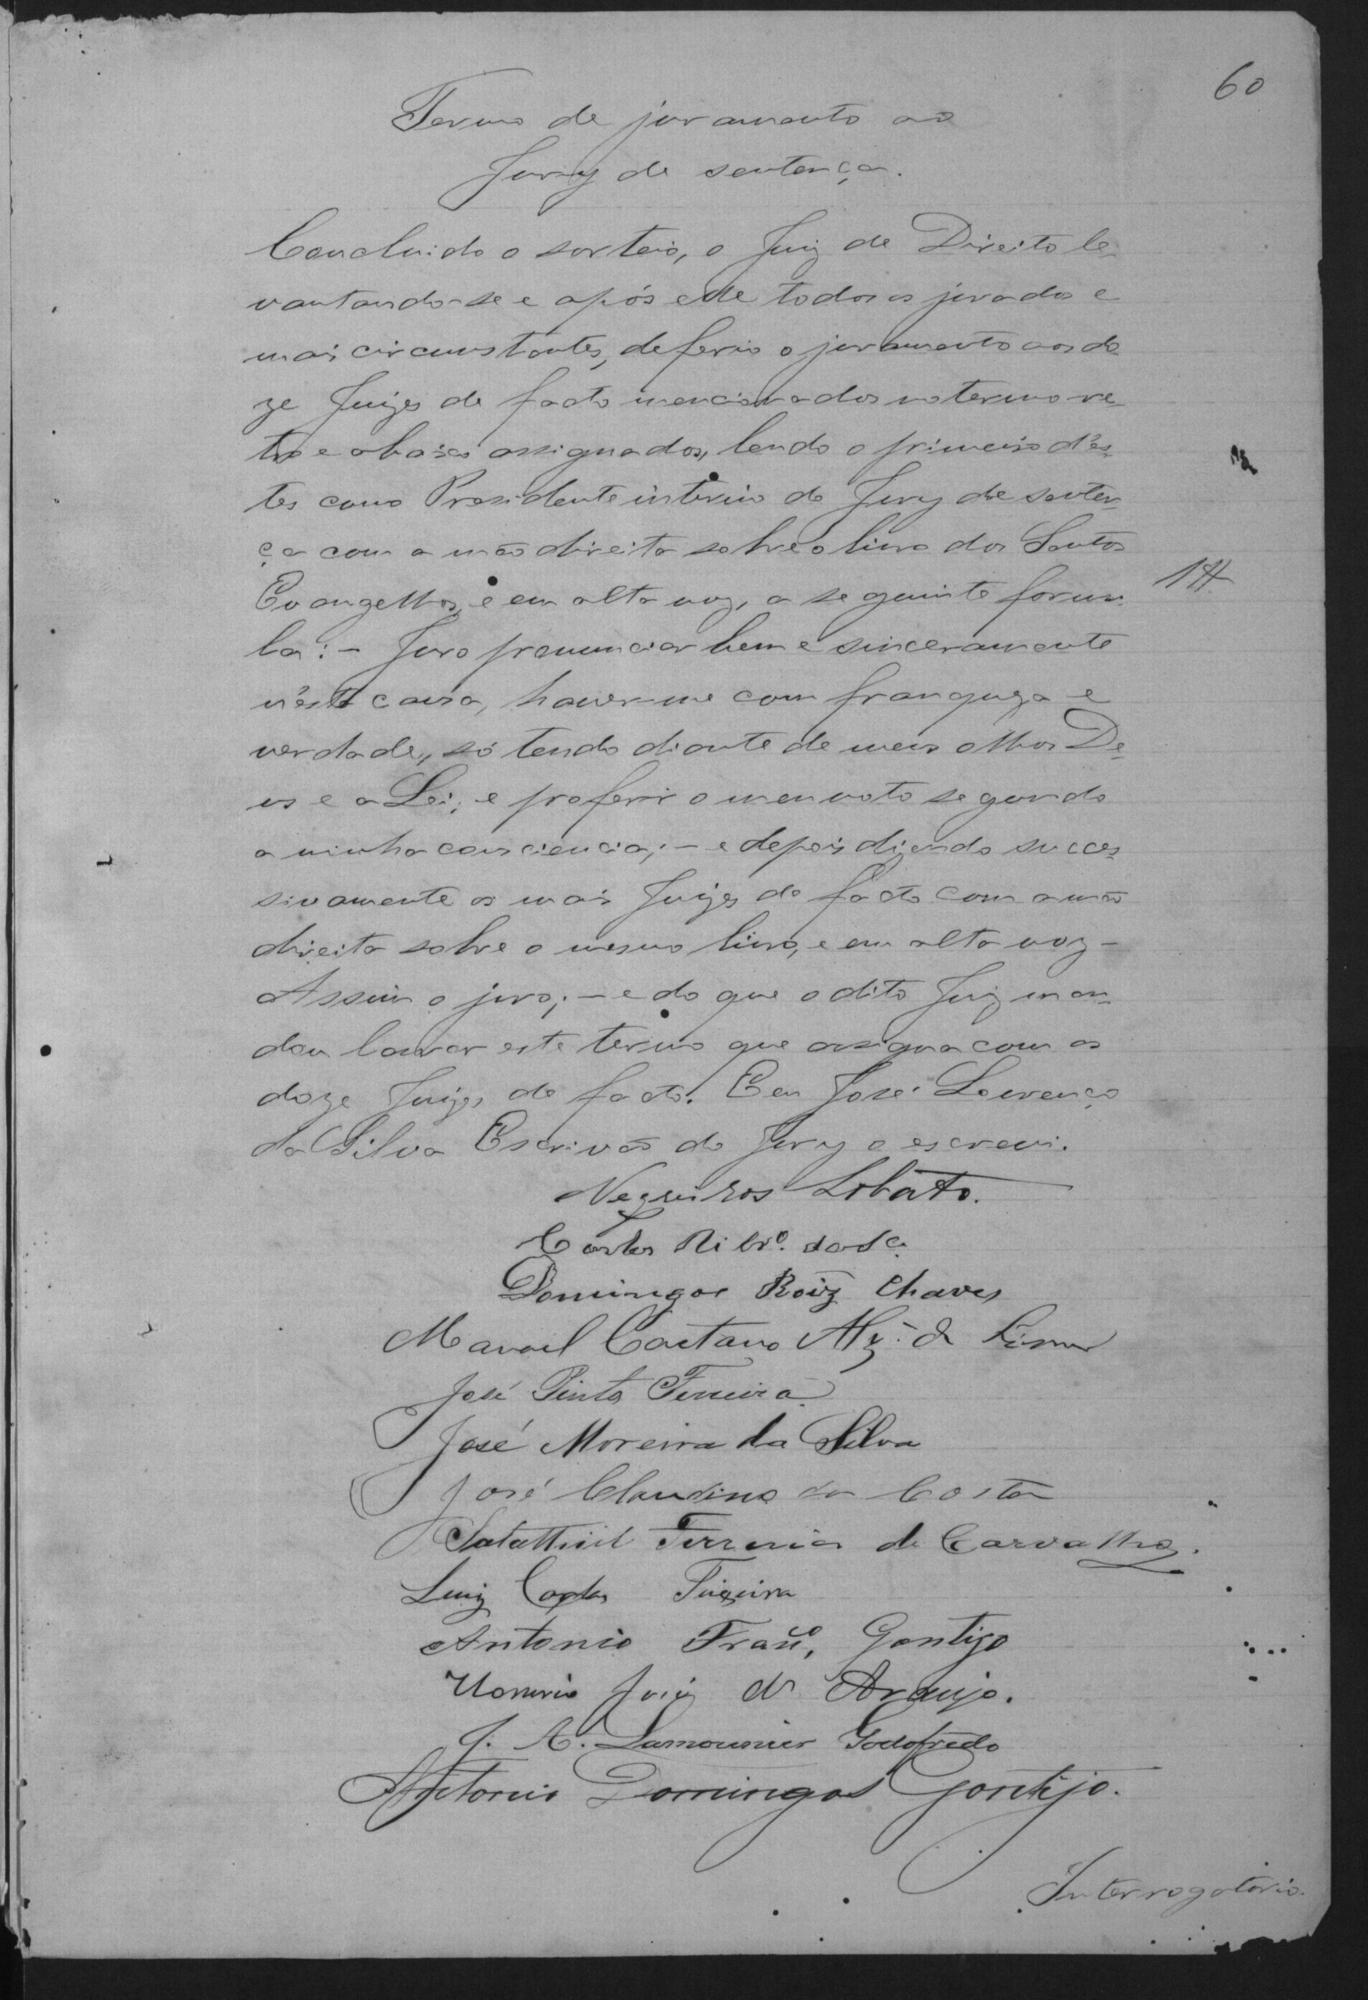 60
Termo de juramento ao
Jury de sentença.
Concluido o sorteio, o Juiz de Direito le-
vantando-se e após elle todos os jurados e
mais circunstantes, deferio o juramento aos do-
ze Juizes de facto mencionados no termo re-
tro e abaixo assignados, lendo o primeiro d'es-
tes como Presidente interino do Jury de senten-
ça com a mão direita sobre o livro dos Santos
Evangelhos, e em alta voz, a seguinte formu-
la: - Juro pronunciar bem e sinceramente
n'esta causa, haver-me com franqueza e
verdade, só tendo diante de meus olhos De-
us e a Lei; e proferir o meu voto segundo
a minha consciencia; - e depois dizendo succes-
sivamente os mais Juizes de facto com a mão
direita sobre o mesmo livro, e em alta voz -
Assim o juro; - e do que o dito Juiz man-
dou lavrar este termo que assigna com os
doze Juizes de facto. Eu José Lourenço
da Silva Escrivão do Jury o escrevi.
Negreiros Lobato.
Carlos Ribr.º da Sª
Domingos Roiz Chaves
Manoel Caetano Alz. de Lima
José Pinto Ferreira
José Moreira da Silva
José Claudino da Costa
Salathiel Ferreira de Carvalho.
Luiz Carlos Teixeira
Antonio Franco, Gontijo
Honorio José de Araujo.
J. A. Lamounier Godofredo
Antonio Domingos Gontijo.
Interrogatorio.